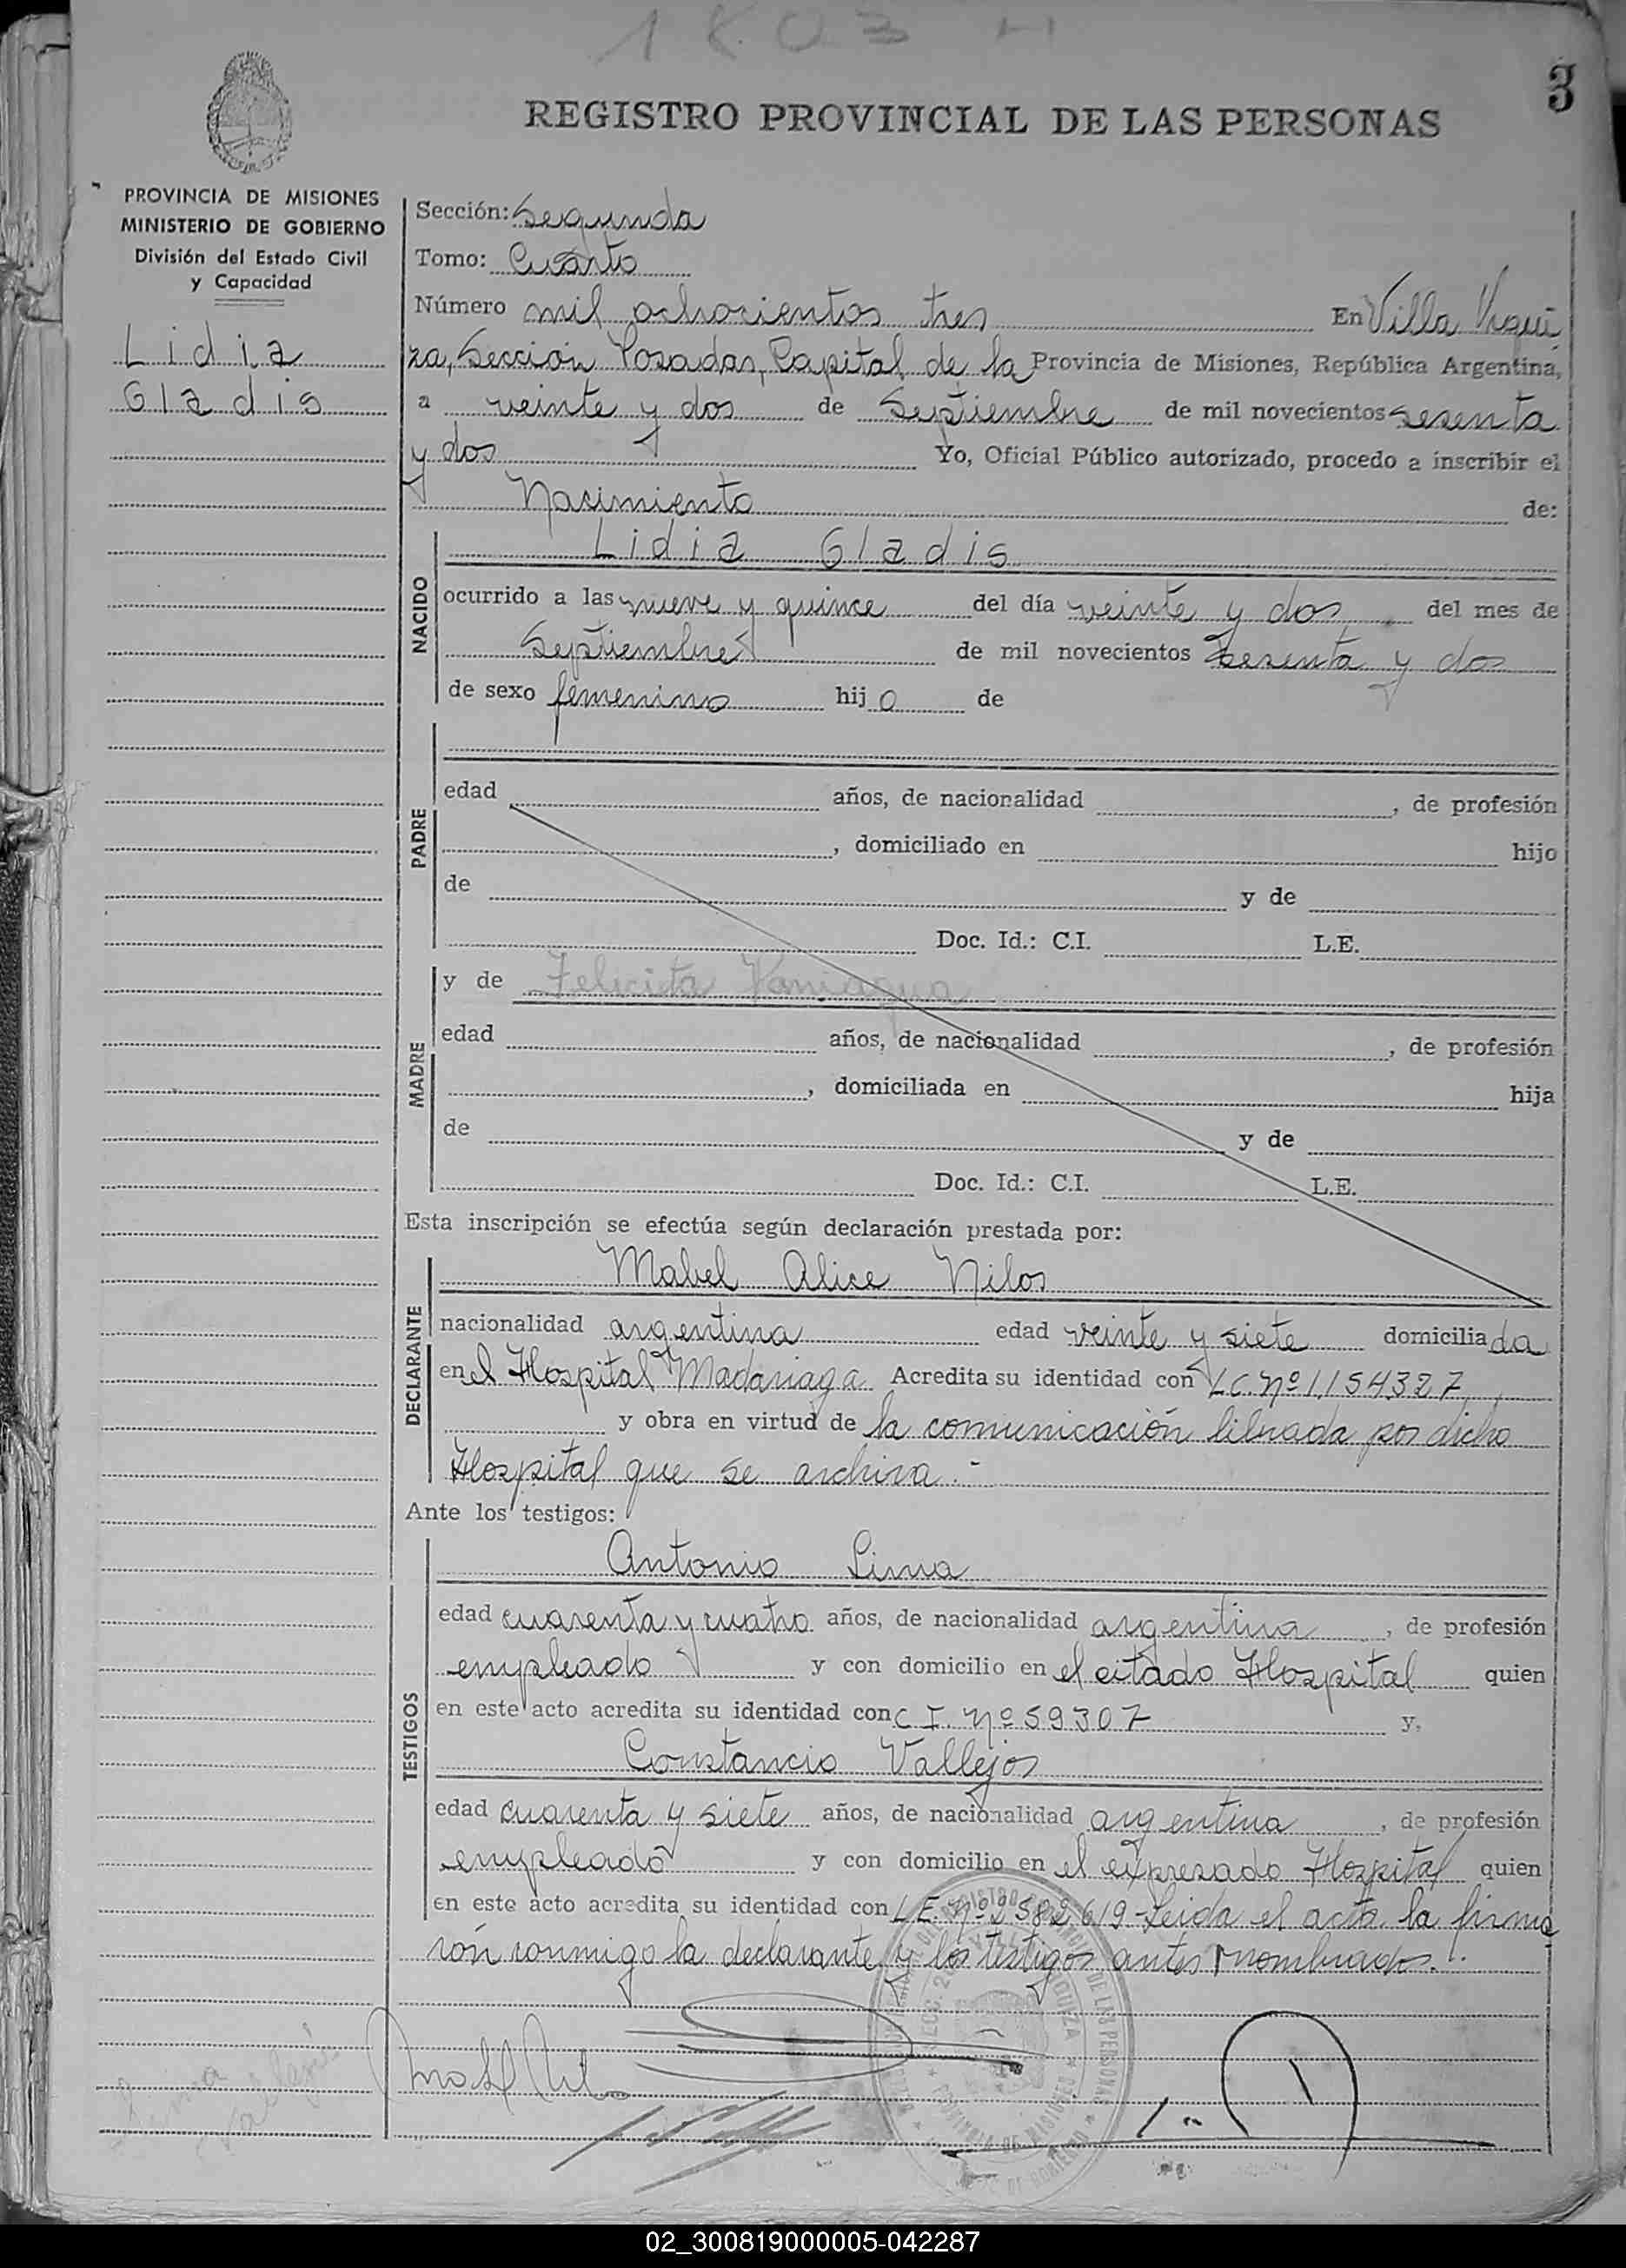 1803 H
3
REGISTRO PROVINCIAL DE LAS PERSONAS
PROVINCIA DE MISIONES
MINISTERIO DE GOBIERNO
División del Estado Civil
y Capacidad
Lidia
Gladis
Sección: Segunda
Tomo: Cuarto
Número mil ochocientos tres En Villa Urqui
za, Sección Posadas, Capital de la Provincia de Misiones, República Argentina,
a veinte y dos de Septiembre de mil novecientos sesenta
y dos Yo, Oficial Público autorizado, procedo a inscribir el
Nacimiento de:
NACIDO
Lidia Gladis
ocurrido a las nueve y quince del día veinte y dos del mes de
Septiembre de mil novecientos sesenta y dos
de sexo femenino hijo de
PADRE
edad años, de nacionalidad , de profesión
, domiciliado en hijo
de y de
Doc. Id.: C.I. L.E.
MADRE
y de Felicita Vaniagua
edad años, de nacionalidad , de profesión
, domiciliada en hija
de y de
Doc. Id.: C.I. L.E.
Esta inscripción se efectúa según declaración prestada por:
DECLARANTE
Mabel Alice Nilos
nacionalidad argentina edad veinte y siete domiciliada
en el Hospital Madariaga Acredita su identidad con L.C. Nº 1,154327
y obra en virtud de la comunicación librada por dicho
Hospital que se archiva.-
Ante los testigos:
TESTIGOS
Antonio Lima
edad cuarenta y cuatro años, de nacionalidad argentina, de profesión
empleado y con domicilio en el citado Hospital quien
en este acto acredita su identidad con C I. Nº 59307 y,
Constancio Vallejos
edad cuarenta y siete años, de nacionalidad argentina, de profesión
empleado y con domicilio en el expresado Hospital quien
en este acto acredita su identidad con L E. Nº 2582619-Leida el acta, la firma
ron conmigo la declarante y los testigos antes nombrados.
Lima
Vallejo
02_300819000005-042287